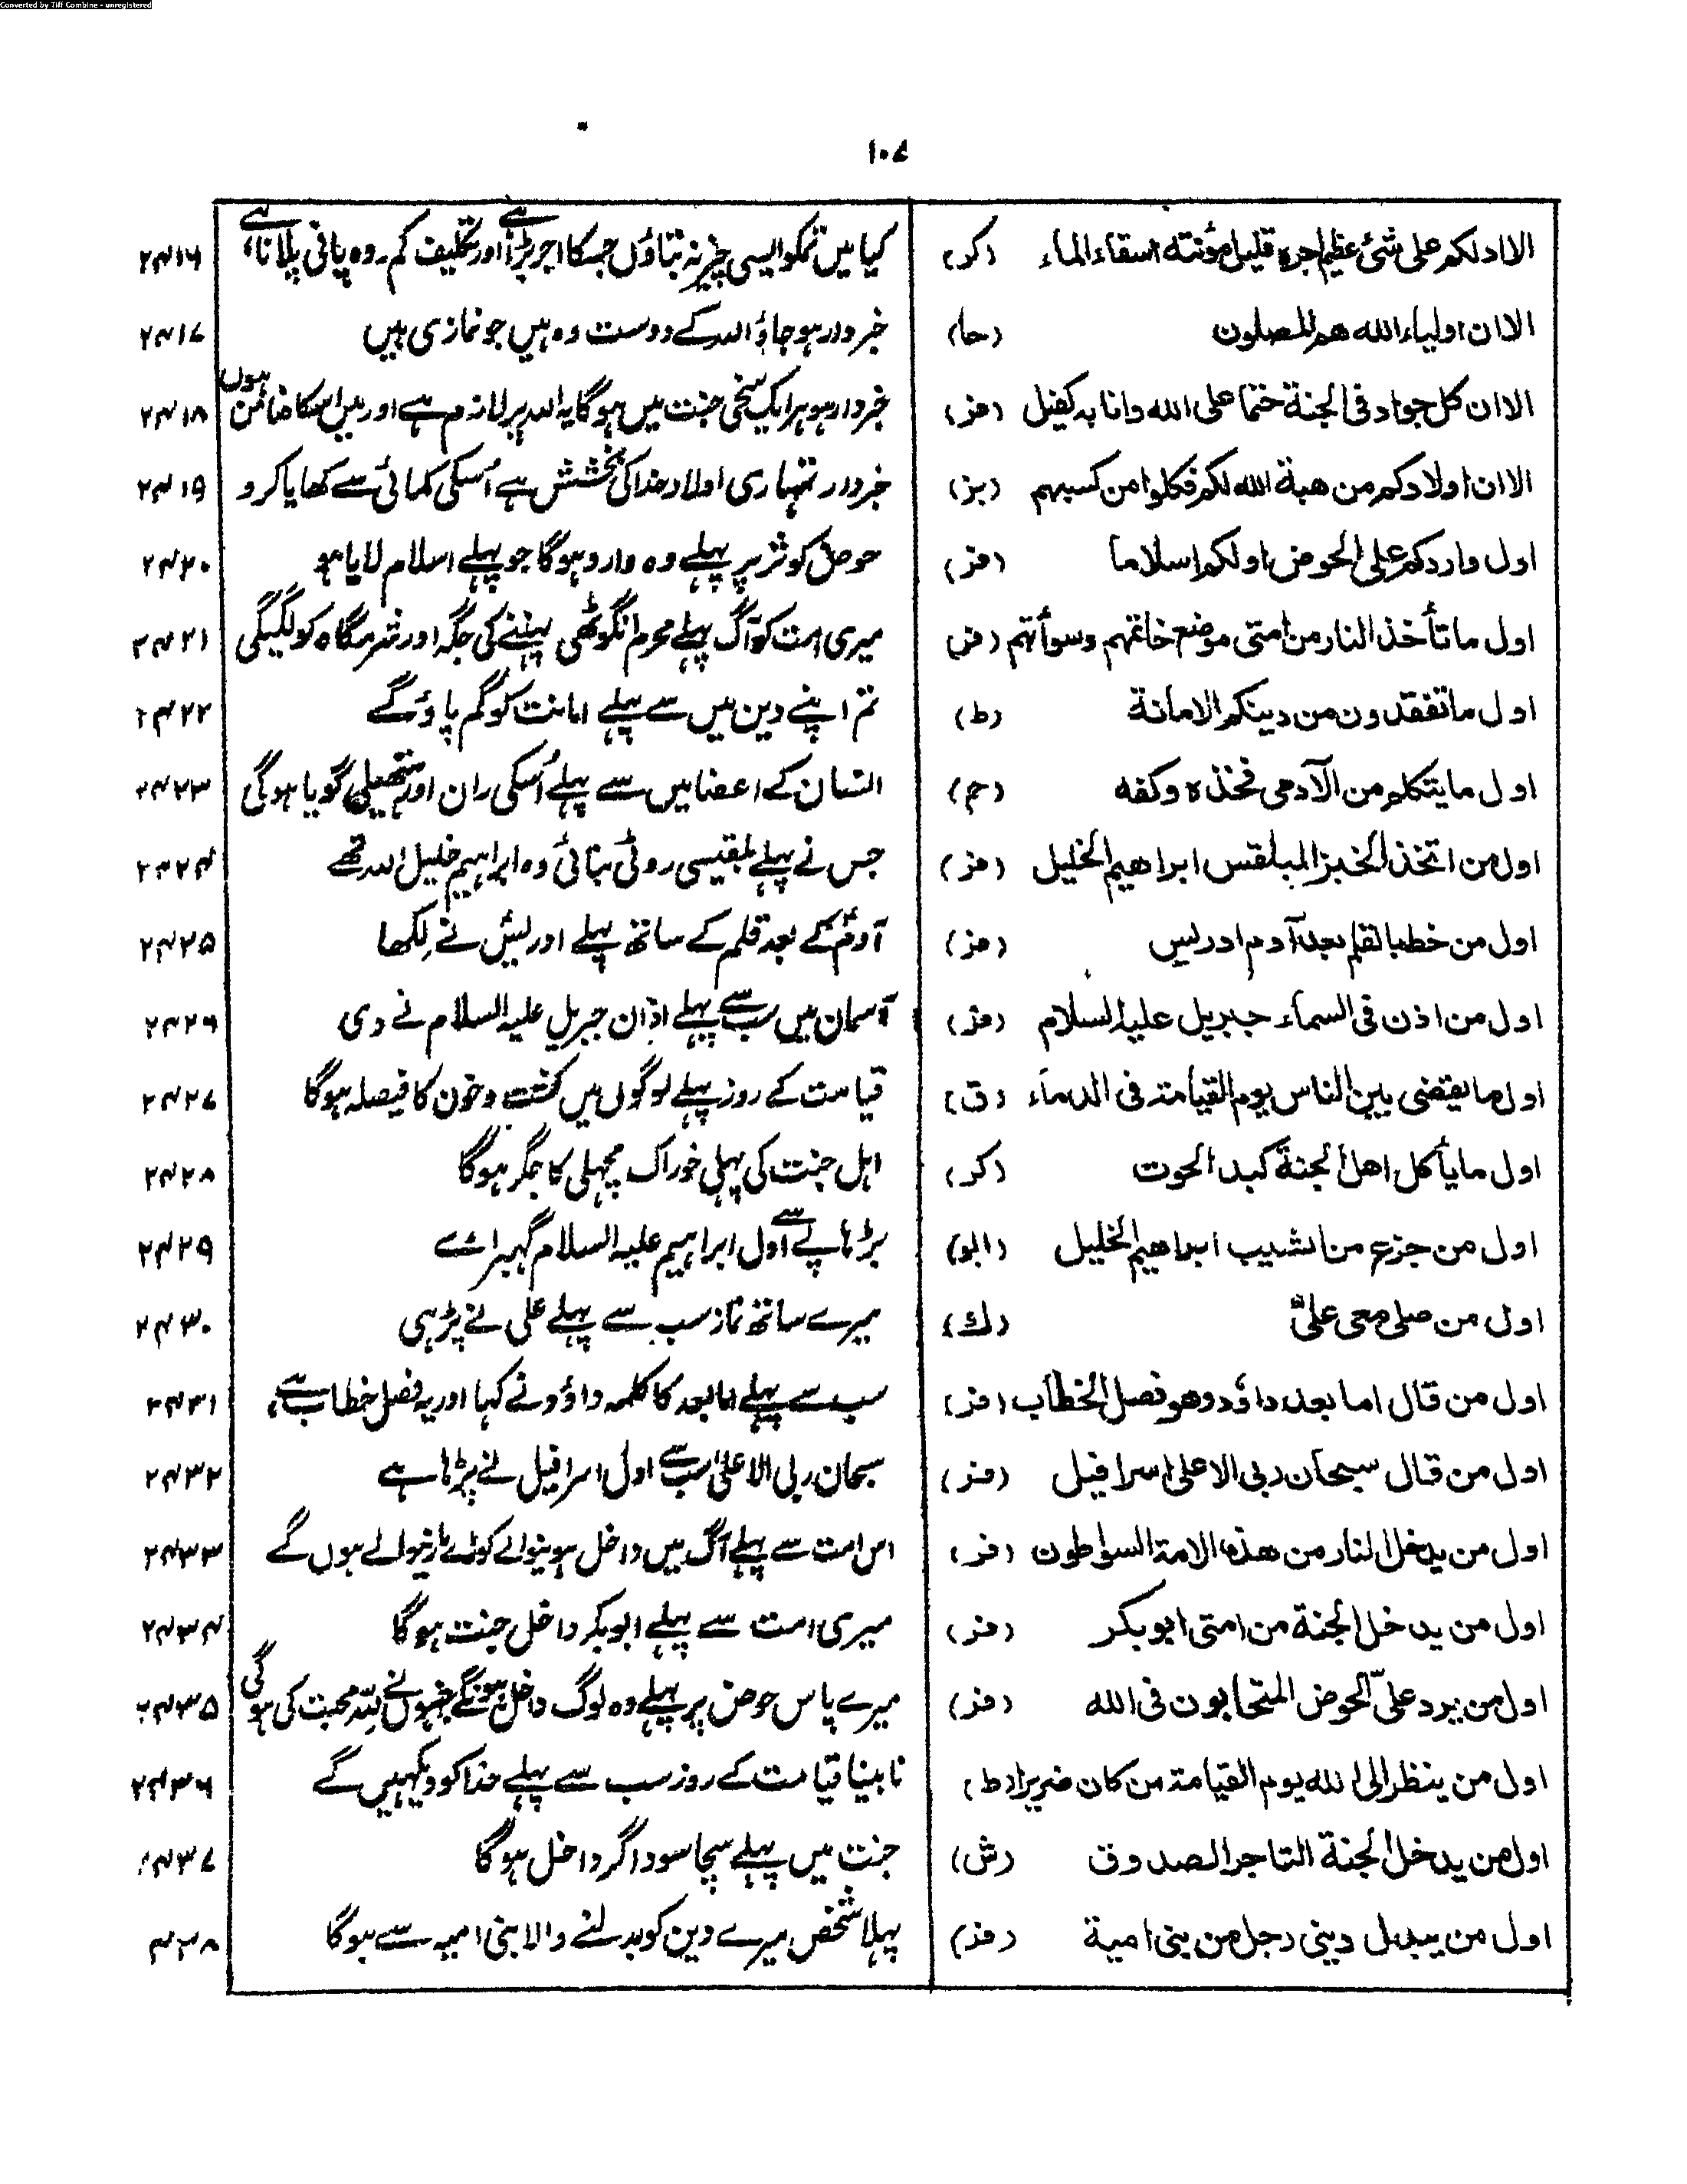 Converted by Tiff Combine - unregistered
۱۰۷
الا ادلکم علی شئ عظیم اجره قلیل مؤنته اسقاء الماء (کر) کیا میں تمکو ایسی چیز نہ بتاؤں جسکا اجر بڑا ہے اور تکلیف کم۔ وہ پانی پلانا ہے، ۲۴۱۶
الا ان اولیاء الله هم المصلون (حا) خبردار ہو جاؤ اللہ کے دوست وہ ہیں جو نمازی ہیں ۲۴۱۷
الا ان کل جواد فی الجنة حتما علی الله وانا به کفیل (فز) خبردار ہو ہر ایک سخی جنت میں ہوگا یہ اللہ پر لازم ہے اور میں اسکا ضامن ہوں ۲۴۱۸
الا ان اولادکم من هبة الله لکم فکلوا من کسبهم (بز) خبردار تمہاری اولاد خدا کی بخشش ہے اُسکی کمائی سے کھایا کرو ۲۴۱۹
اول واردکم علی الحوض اولکم اسلاما (فز) حوض کوثر پر پہلے وہ وارد ہوگا جو پہلے اسلام لایا ہو ۲۴۲۰
اول ما تأخذ النار من امتی موضع خاتمهم وسوأتهم (فز) میری امت کو آگ پہلے محرم انگوٹھی پہننے کی جگہ اور شرمگاہ کو لگیگی ۲۴۲۱
اول ما تفقدون من دینکم الامانة (ط) تم اپنے دین میں سے پہلے امانت کو گم پاؤ گے ۲۴۲۲
اول ما یتکلم من الآدمی فخذه وکفه (حم) انسان کے اعضا میں سے پہلے اُسکی ران اور ہتھیلی گویا ہوگی ۲۴۲۳
اول من اتخذ الخبز المبلقس ابراهیم الخلیل (فز) جس نے پہلے بلقیسی روٹی بنائی وہ ابراہیم خلیل اللہ تھے ۲۴۲۴
اول من خط بالقلم بعد آدم ادریس (فز) آدمؑ کے بعد قلم کے ساتھ پہلے ادریسؑ نے لکھا ۲۴۲۵
اول من اذن فی السماء جبریل علیه السلام (فز) آسمان میں سب سے پہلے اذان جبریل علیہ السلام نے دی ۲۴۲۶
اول ما یقضی بین الناس یوم القیامة فی الدماء (ق) قیامت کے روز پہلے لوگوں میں کشت وخون کا فیصلہ ہوگا ۲۴۲۷
اول ما یأکل اهل الجنة کبد الحوت (کر) اہل جنت کی پہلی خوراک مچھلی کا جگر ہوگا ۲۴۲۸
اول من جزع من الشیب ابراهیم الخلیل (ابو) بڑہاپے سے اول ابراہیم علیہ السلام گہبرائے ۲۴۲۹
اول من صلی معی علیؓ (ك) میرے ساتھ نماز سب سے پہلے علی نے پڑہی ۲۴۳۰
اول من قال اما بعد داؤد وهو فصل الخطاب (فز) سب سے پہلے اما بعد کا کلمہ داؤد نے کہا اور یہ فصل خطاب ہے، ۲۴۳۱
اول من قال سبحان ربی الاعلی اسرافیل (فز) سبحان ربی الاعلیٰ سب سے اول اسرافیل نے پڑہا ہے ۲۴۳۲
اول من یدخل النار من هذه الامة السواطون (فز) اس امت سے پہلے آگ میں داخل ہونیوالے کوڑے مارنیوالے ہوں گے ۲۴۳۳
اول من یدخل الجنة من امتی ابوبکر (فز) میری امت سے پہلے ابوبکر داخل جنت ہوگا ۲۴۳۴
اول من یرد علیّ الحوض المتحابون فی الله (فز) میرے پاس حوض پر پہلے وہ لوگ داخل ہونگے جنہوں نے للہ محبت کی ہوگی ۲۴۳۵
اول من ینظر الی الله یوم القیامة من کان ضریرا (ط) نابینا قیامت کے روز سب سے پہلے خدا کو دیکہیں گے ۲۴۳۶
اول من یدخل الجنة التاجر الصدوق (ش) جنت میں پہلے سچا سوداگر داخل ہوگا ۲۴۳۷
اول من یبدل دینی رجل من بنی امیة (فز) پہلا شخص میرے دین کو بدلنے والا بنی امیہ سے ہوگا ۲۴۳۸